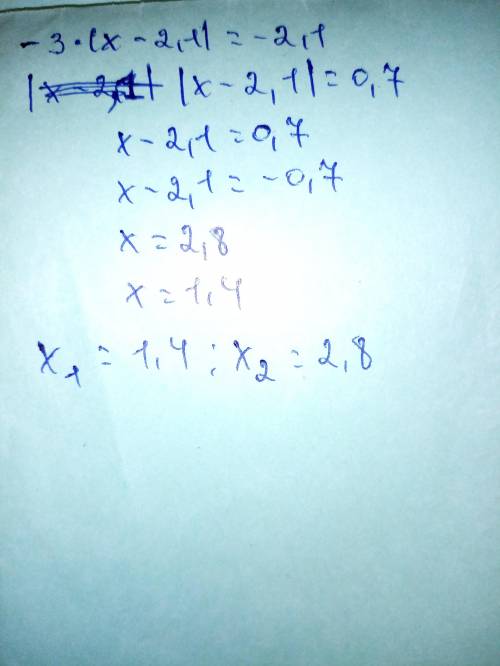 -3·|x-2,1|=-2,1
|x-2,1|=0,7
x-2,1=0,7
x-2,1=-0,7
x=2,8
x=1,4
x₁=1,4; x₂=2,8